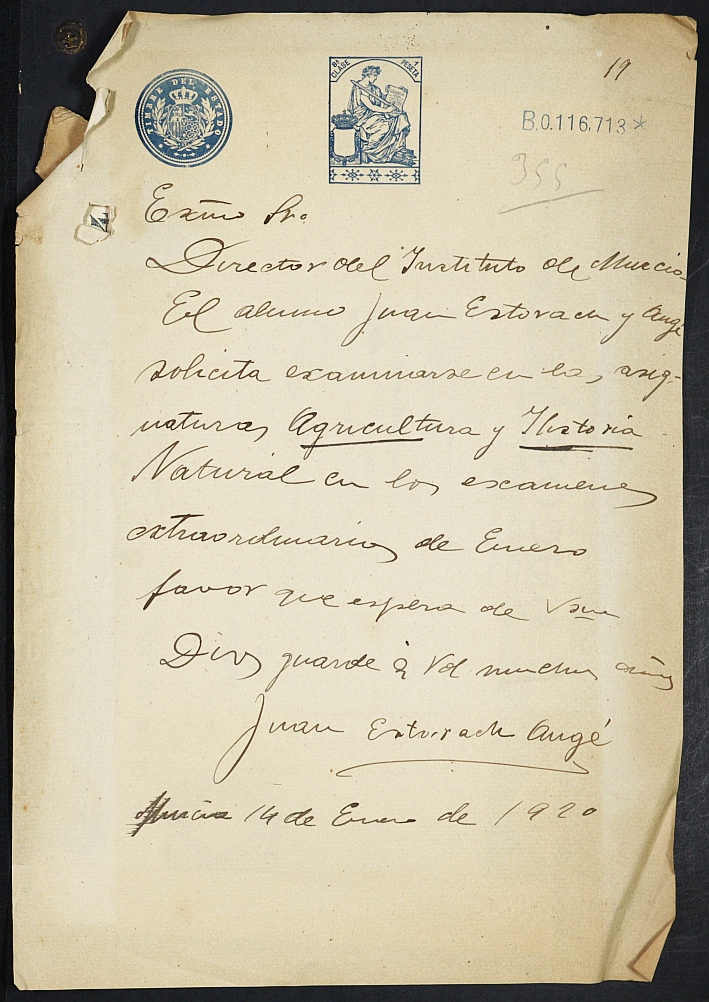 TIMBRE DEL ESTADO
8ª CLASE
1 PESETA
19
B.0.116,713*
355
Exmo Sr.
Director del Instituto de Murcia
El alumno Juan Estorach y Angé
solicita examinarse en las asig-
naturas Agricultura y Historia
Natural en los examenes
extraordinarios de Enero
favor que espera de
Dios guarde à Vd muchos años
Juan Estorach Angé
Murcia 14 de Enero de 1920